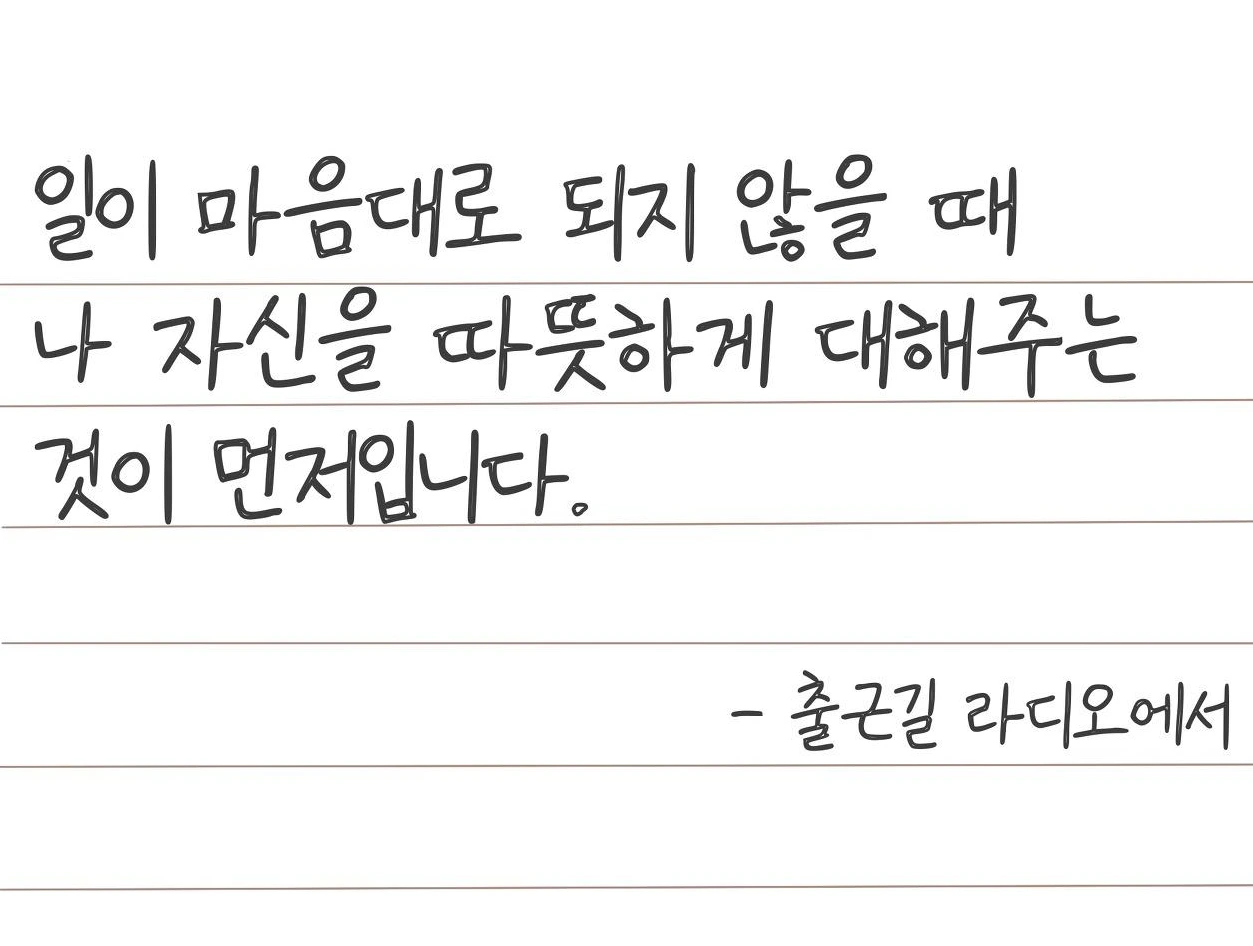 일이 마음대로 되지 않을 때
나 자신을 따뜻하게 대해주는
것이 먼저입니다.
- 출근길 라디오에서